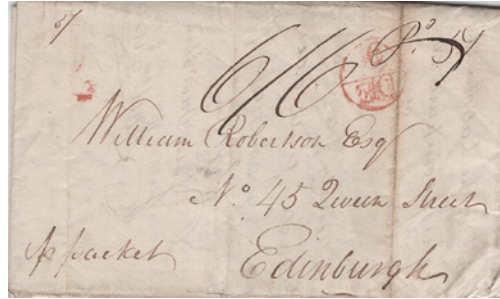 6/6
William Robertson Esq
No 45 Queen Street
Edinburgh
packet